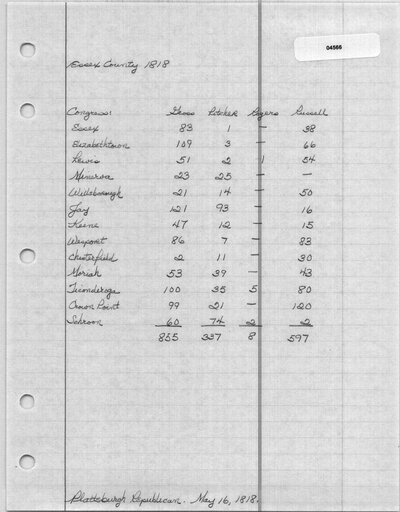 04566
Essex County 1818
Congress: Gross Pitcher Rogers Russell
Essex 83 1 — 38
Elizabethtown 109 3 — 66
Lewis 51 2 1 54
Minerva 23 25 — —
Willsborough 21 14 — 50
Jay 121 93 — 16
Keene 47 12 — 15
Westport 86 7 — 83
Chesterfield 2 11 — 30
Moriah 53 39 — 43
Ticonderoga 100 35 5 80
Crown Point 99 21 — 120
Schroon 60 74 2 2
855 337 8 597
Plattsburgh Republican. May 16, 1818.